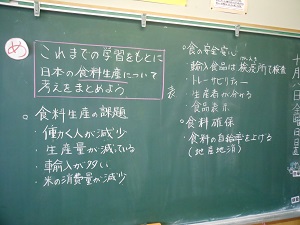 め
これまでの学習をもとに
日本の食料生産について
考えをまとめよう
○食料生産の課題
・働く人が減少
・生産量が減っている
・輸入が多い
・米の消費量が減少
○食の安全安心
・輸入食品は検疫所で検査
・トレーサビリティー
・生産者が分かる
・食品表示
○食料確保
・食料の自給率を上げる
(地産地消)